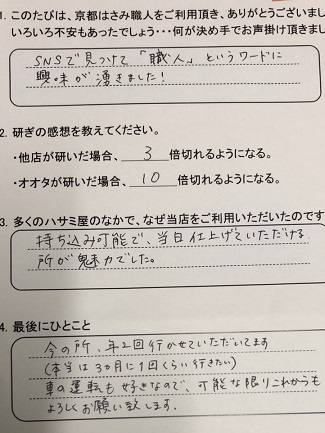 1. このたびは、京都はさみ職人をご利用頂き、ありがとうございまし
いろいろ不安もあったでしょう･･･何が決め手でお声掛け頂きまし
SNSで見つけて「職人」というワードに
興味が湧きました!
2. 研ぎの感想を教えてください。
・他店が研いだ場合、 3 倍切れるようになる。
・オオタが研いだ場合、 10 倍切れるようになる。
3. 多くのハサミ屋のなかで、なぜ当店をご利用いただいたのです
持ち込み可能で、当日仕上げていただける
所が魅力でした。
4. 最後にひとこと
今の所、年2回行かせていただいてます
(本当は3カ月に1回くらい行きたい)
車の運転も好きなので、可能な限りこれからも
よろしくお願い致します.